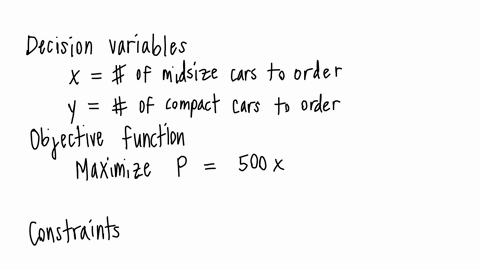 Decision variables
x = # of midsize cars to order
y = # of compact cars to order
Objective function
Maximize P = 500x
Constraints